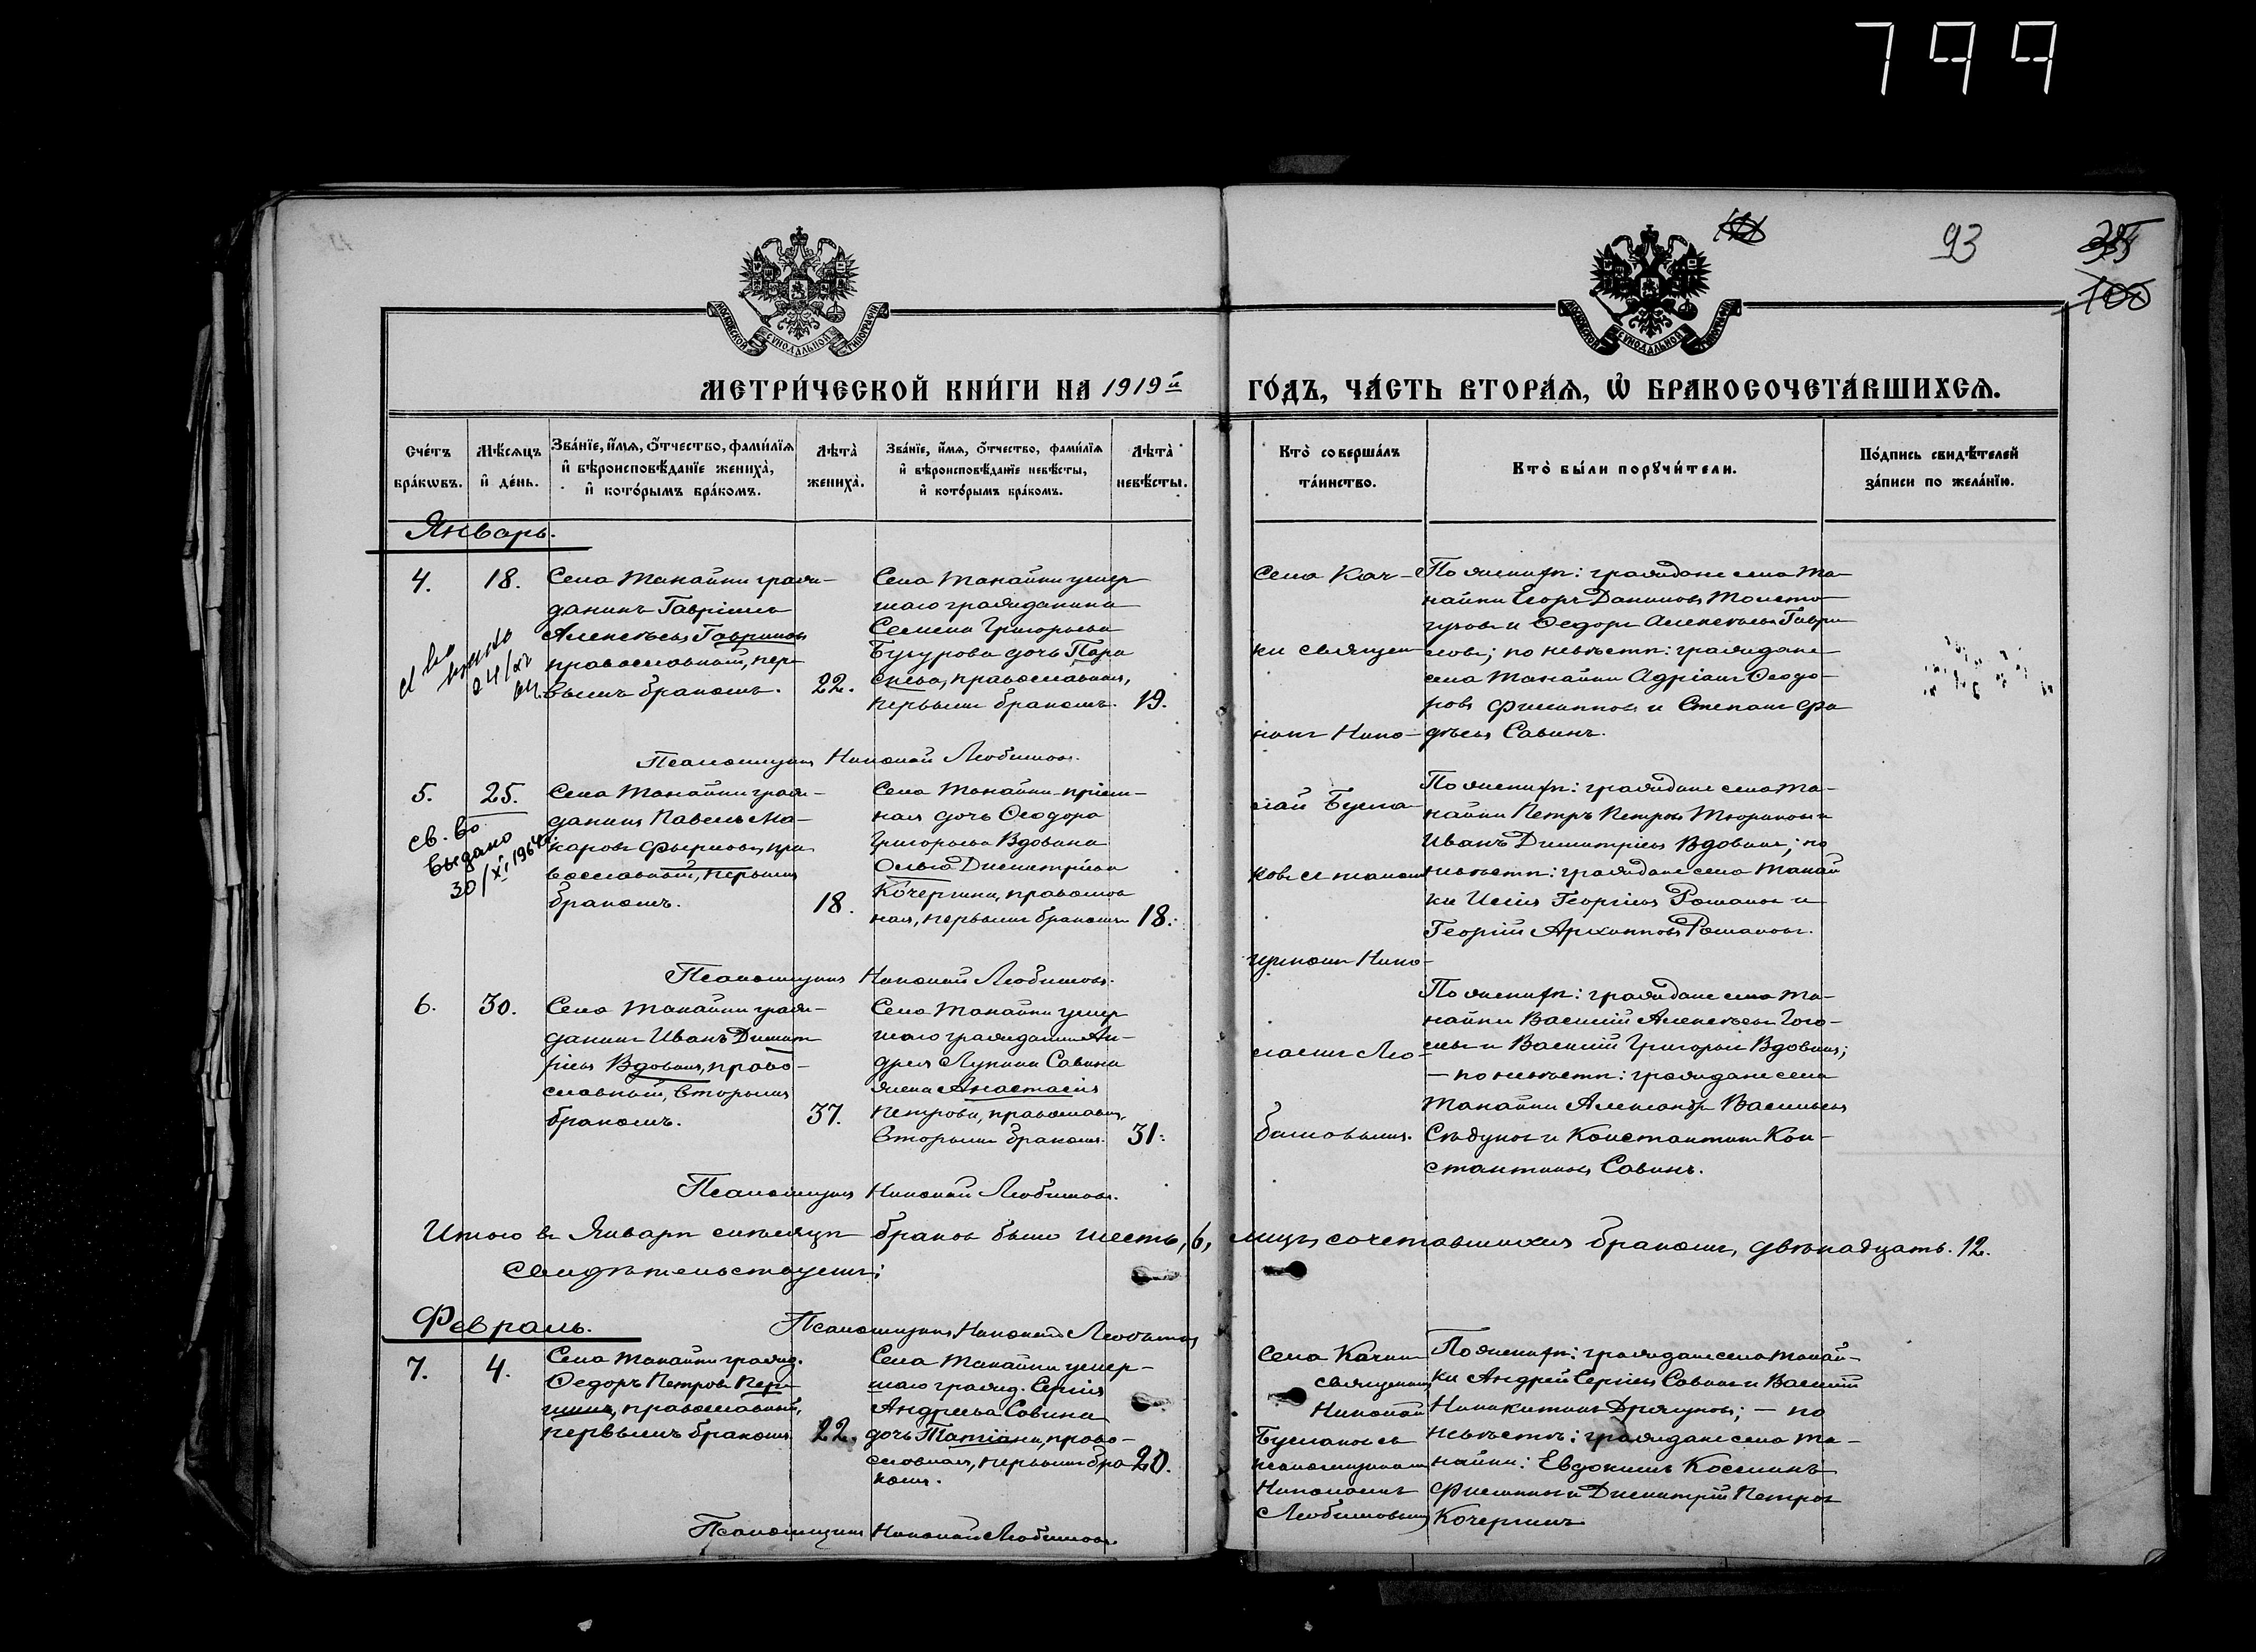 799
93
МОСКОВСКОЙ СѴНОДАЛЬНОЙ ТИПОГРАФІИ
МОСКОВСКОЙ СѴНОДАЛЬНОЙ ТИПОГРАФІИ
МЕТРИ́ЧЕСКОЙ КНИ́ГИ НА 1919й ГО́ДЪ, ЧА́СТЬ ВТОРА́Я, Ѡ БРАКОСОЧЕТА́ВШИХСЯ.
Сче́тъ бра́кѡвъ.
Мѣ́сяцъ и де́нь.
Зва́нїе, и́мя, ѻ́тчество, фами́лїя
и вѣроисповѣ́данїе жениха̀,
и кото́рымъ бра́комъ.
Лѣта̀ жениха̀.
Зва́нїе, и́мя, ѻ́тчество, фами́лїя
и вѣроисповѣ́данїе невѣ́сты,
и кото́рымъ бра́комъ.
Лѣта̀ невѣ́сты.
Кто̀ соверша́лъ
та́инство.
Кто̀ бы́ли порꙋчи́тели.
По́дпись свидѣ́телей
за́писи по жела́нїю.
Январь.
4.
18.
Села Танайки граж-
данинъ Гавріилъ
Алексѣевъ Гавриловъ
православный, пер-
вымъ бракомъ.
22.
Села Танайки умер
шаго гражданина
Семена Григорьева
Бугурова дочь Пара
скева, православная,
первымъ бракомъ.
19.
По женихѣ: граждане села Та-
найки Егоръ Даниловъ Толсто-
гузовъ и Ѳедоръ Алексѣевъ Гаври
ловъ; по невѣстѣ: граждане
села Танайки Адріанъ Ѳеодо-
ровъ Филипповъ и Степанъ Фа
дѣевъ Савинъ.
Псаломщикъ Николай Любимовъ.
5.
25.
св. во
выдано
30/XI 1964 г.
Села Танайки граж-
данинъ Павелъ Ма-
каровъ Фирсовъ, пра
вославный, первымъ
бракомъ.
18.
Села Танайки пріем-
ная дочь Ѳеодора
Григорьева Вдовина
Ольга Димитріева
Кочергина, православ
ная, первымъ бракомъ
18.
По женихѣ: граждане села Та-
найки Петръ Петровъ Тюриковъ и
Иванъ Димитріевъ Вдовинъ; по
невѣстѣ: граждане села Танай
ки Георгіевъ Романовъ и
Георгій Архиповъ Романовъ.
Псаломщикъ Николай Любимовъ.
6.
30.
Села Танайки граж-
данинъ Иванъ Димит
ріевъ Вдовинъ, право-
славный, вторымъ
бракомъ.
37.
Села Танайки умер
шаго гражданина Ан-
дрея Лукина Савина
жена Анастасія
Петрова, православн.
вторымъ бракомъ.
31.
По женихѣ: граждане села Та-
найки Василій Алексѣевъ Гого-
левъ и Василій Григорьевъ Вдовинъ;
— по невѣстѣ: граждане села
Танайки Александръ Васильевъ
Сѣдуновъ и Константинъ Кон-
стантиновъ Савинъ.
Села Кач-
ки священ
никъ Нико-
лай Бусла-
ковъ с псалом
щикомъ Нико-
лаемъ Лю-
бимовымъ.
Псаломщикъ Николай Любимовъ.
Итого въ Январѣ мѣсяцѣ браковъ было шесть, 6, лицъ, сочетавшихся бракомъ, двѣнадцать. 12.
Свидѣтельствуемъ:
Псаломщикъ Николай Любимовъ
Февраль.
7.
4.
Села Танайки гражд.
Ѳедоръ Петровъ
православный,
первымъ бракомъ.
22.
Села Танайки умер-
шаго гражд. Сергія
Андреева Савина
дочь Татіана, право-
славная, первымъ бра
комъ.
20.
Села Качки
священникъ
Николай
Буслаковъ съ
псаломщикомъ
Николаемъ
Любимовымъ
По женихѣ: граждане села Танай-
ки Андрей Сергіевъ Савинъ и Василій
— по
невѣстѣ: граждане села Та-
найки: Евдокимъ Косминъ
Филипповъ и Димитрій Петровъ
Кочергинъ
Псаломщикъ Николай Любимовъ.